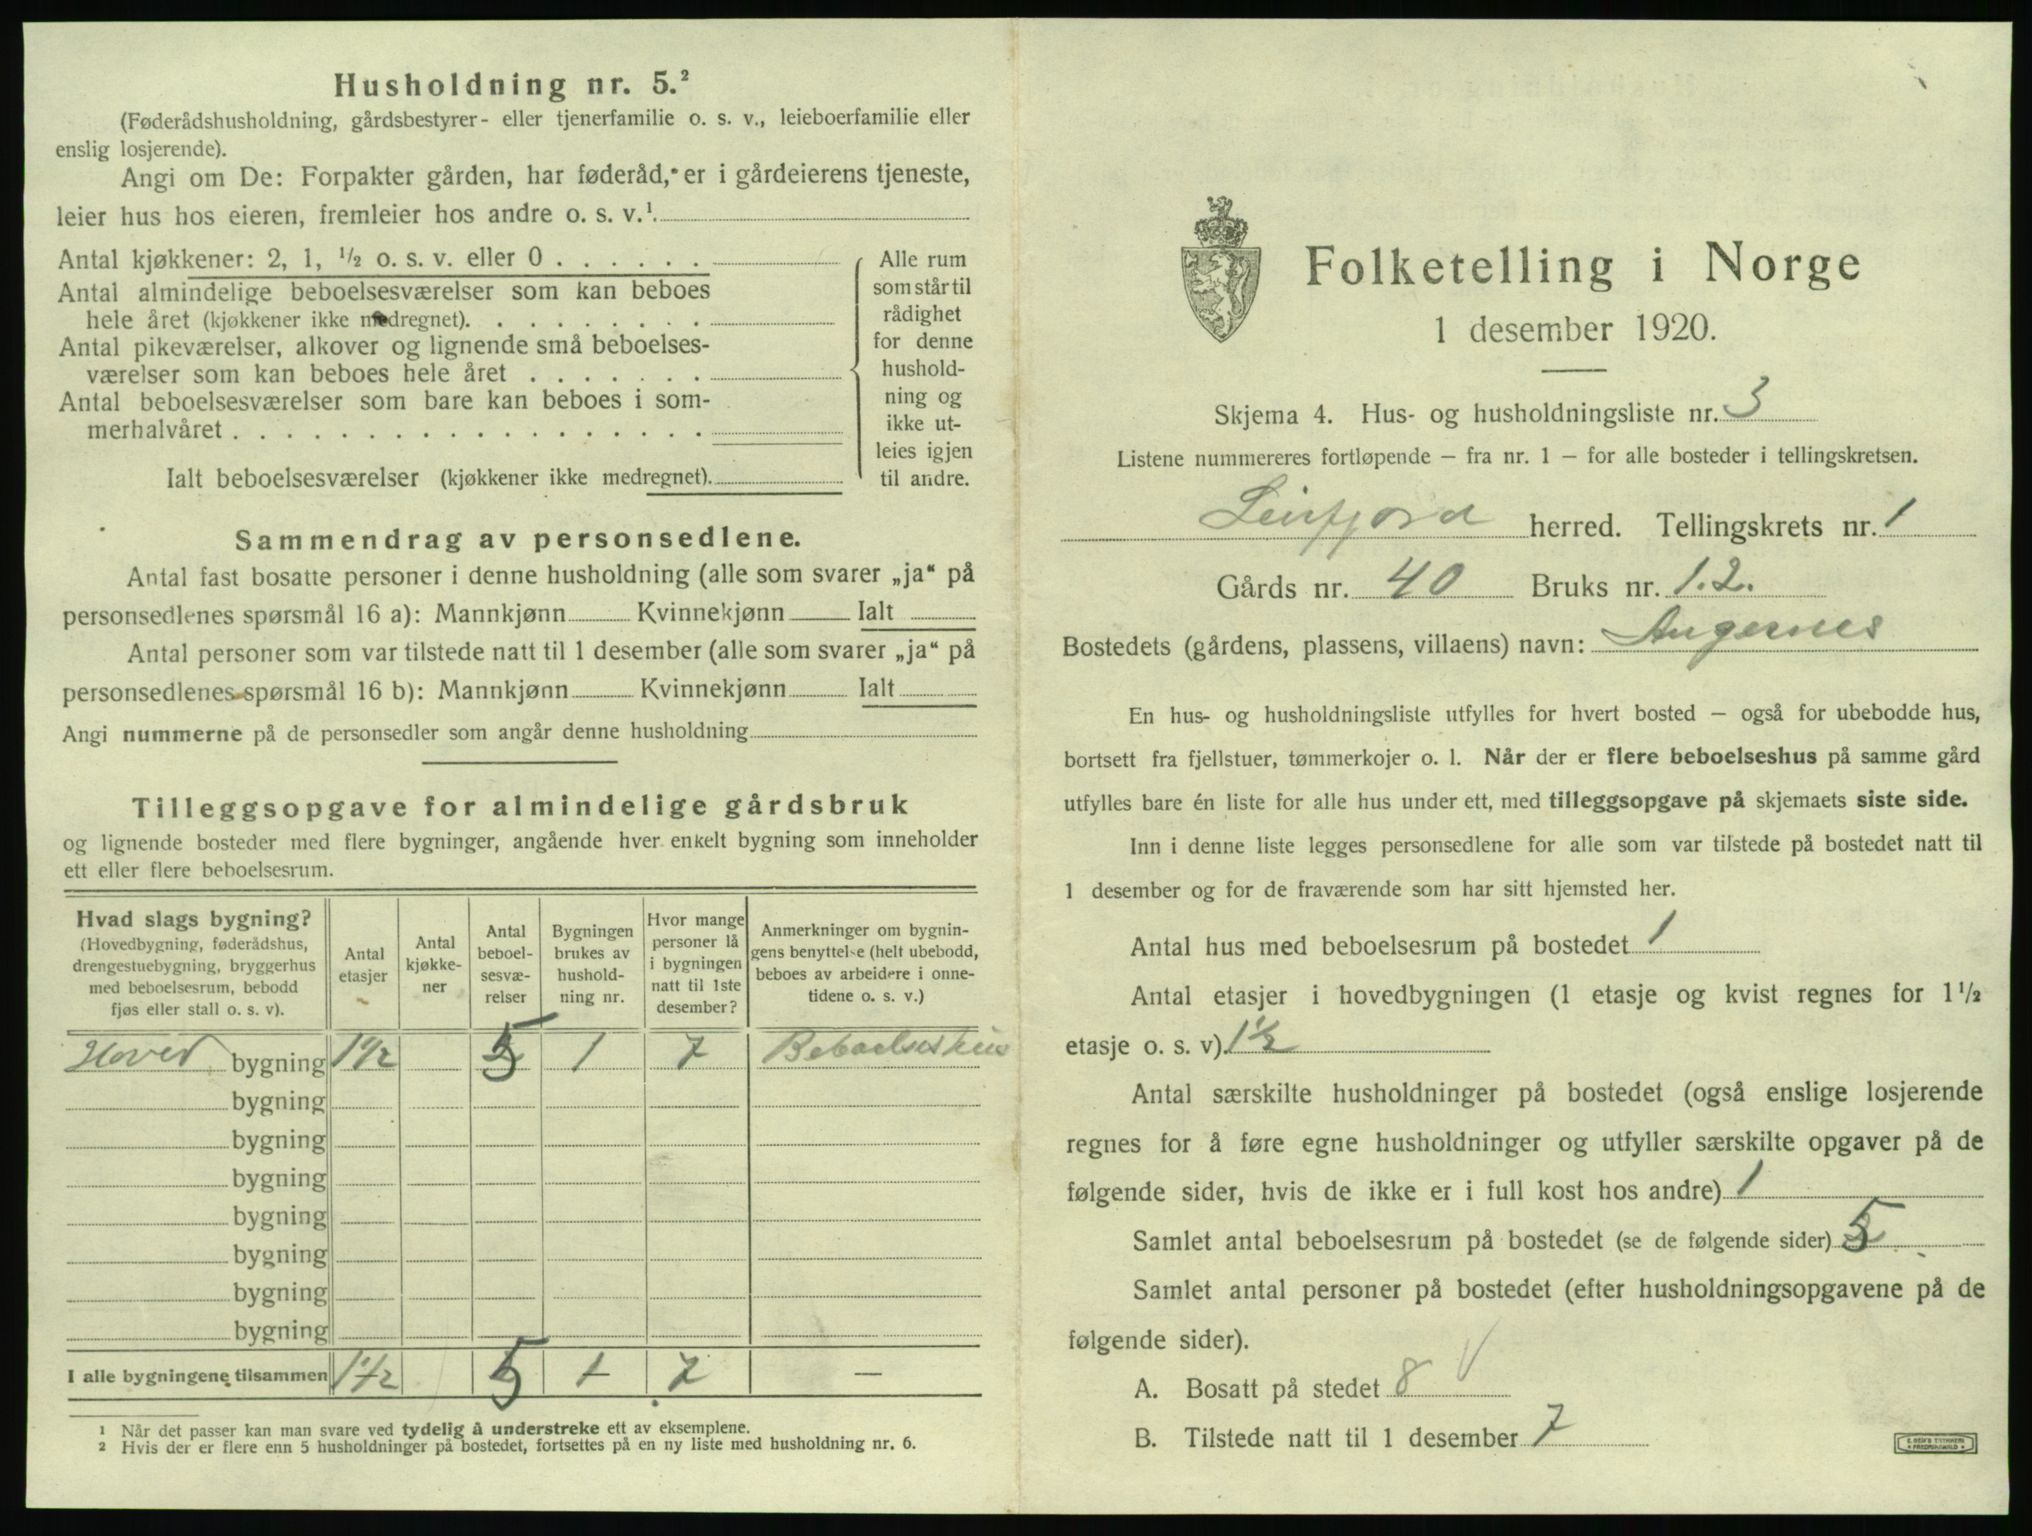 Husholdning nr. 5.²
(Føderådshusholdning, gårdsbestyrer- eller tjenerfamilie o. s. v., leieboerfamilie eller
enslig losjerende).
Angi om De: Forpakter gården, har føderåd, er i gårdeierens tjeneste,
leier hus hos eieren, fremleier hos andre o. s. v.¹
Antal kjøkkener: 2, 1, ½ o. s. v. eller 0
Antal almindelige beboelsesværelser som kan beboes
hele året (kjøkkener ikke medregnet).
Antal pikeværelser, alkover og lignende små beboelses-
værelser som kan beboes hele året
Antal beboelsesværelser som bare kan beboes i som-
merhalvåret
Ialt beboelsesværelser (kjøkkener ikke medregnet).
Alle rum
som står til
rådighet
for denne
hushold-
ning og
ikke ut-
leies igjen
til andre.
Sammendrag av personsedlene.
Antal fast bosatte personer i denne husholdning (alle som svarer „ja“ på
personsedlenes spørsmål 16 a): Mannkjønn Kvinnekjønn Ialt
Antal personer som var tilstede natt til 1 desember (alle som svarer „ja“ på
personsedlenes spørsmål 16 b): Mannkjønn Kvinnekjønn Ialt
Angi nummerne på de personsedler som angår denne husholdning
Tilleggsopgave for almindelige gårdsbruk
og lignende bosteder med flere bygninger, angående hver enkelt bygning som inneholder
ett eller flere beboelsesrum.
Hvad slags bygning?
(Hovedbygning, føderådshus,
drengestuebygning, bryggerhus
med beboelsesrum, bebodd
fjøs eller stall o. s. v).
Antal
etasjer
Antal
kjøkke-
ner
Antal
beboel-
sesvæ-
relser
Bygningen
brukes av
hushold-
ning nr.
Hvor mange
personer lå
i bygningen
natt til 1ste
desember?
Anmerkninger om bygnin-
gens benyttelse (helt ubebodd,
beboes av arbeidere i onne-
tidene o. s. v.)
Hoved bygning 1½ 5 1 7 Beboelseshus
bygning
bygning
bygning
bygning
bygning
bygning
bygning
I alle bygningene tilsammen 1½ 5 1 7 —
¹ Når det passer kan man svare ved tydelig å understreke ett av eksemplene.
² Hvis der er flere enn 5 husholdninger på bostedet, fortsettes på en ny liste med husholdning nr. 6.
Folketelling i Norge
1 desember 1920.
Skjema 4. Hus- og husholdningsliste nr. 3
Listene nummereres fortløpende — fra nr. 1 — for alle bosteder i tellingskretsen.
Leirfjord herred. Tellingskrets nr. 1
Gårds nr. 40 Bruks nr. 1.2.
Bostedets (gårdens, plassens, villaens) navn: Angernes
En hus- og husholdningsliste utfylles for hvert bosted — også for ubebodde hus,
bortsett fra fjellstuer, tømmerkojer o. l. Når der er flere beboelseshus på samme gård
utfylles bare én liste for alle hus under ett, med tilleggsopgave på skjemaets siste side.
Inn i denne liste legges personsedlene for alle som var tilstede på bostedet natt til
1 desember og for de fraværende som har sitt hjemsted her.
Antal hus med beboelsesrum på bostedet 1
Antal etasjer i hovedbygningen (1 etasje og kvist regnes for 1½
etasje o. s. v). 1½
Antal særskilte husholdninger på bostedet (også enslige losjerende
regnes for å føre egne husholdninger og utfyller særskilte opgaver på de
følgende sider, hvis de ikke er i full kost hos andre) 1
Samlet antal beboelsesrum på bostedet (se de følgende sider) 5
Samlet antal personer på bostedet (efter husholdningsopgavene på de
følgende sider).
A. Bosatt på stedet 8 V
B. Tilstede natt til 1 desember 7